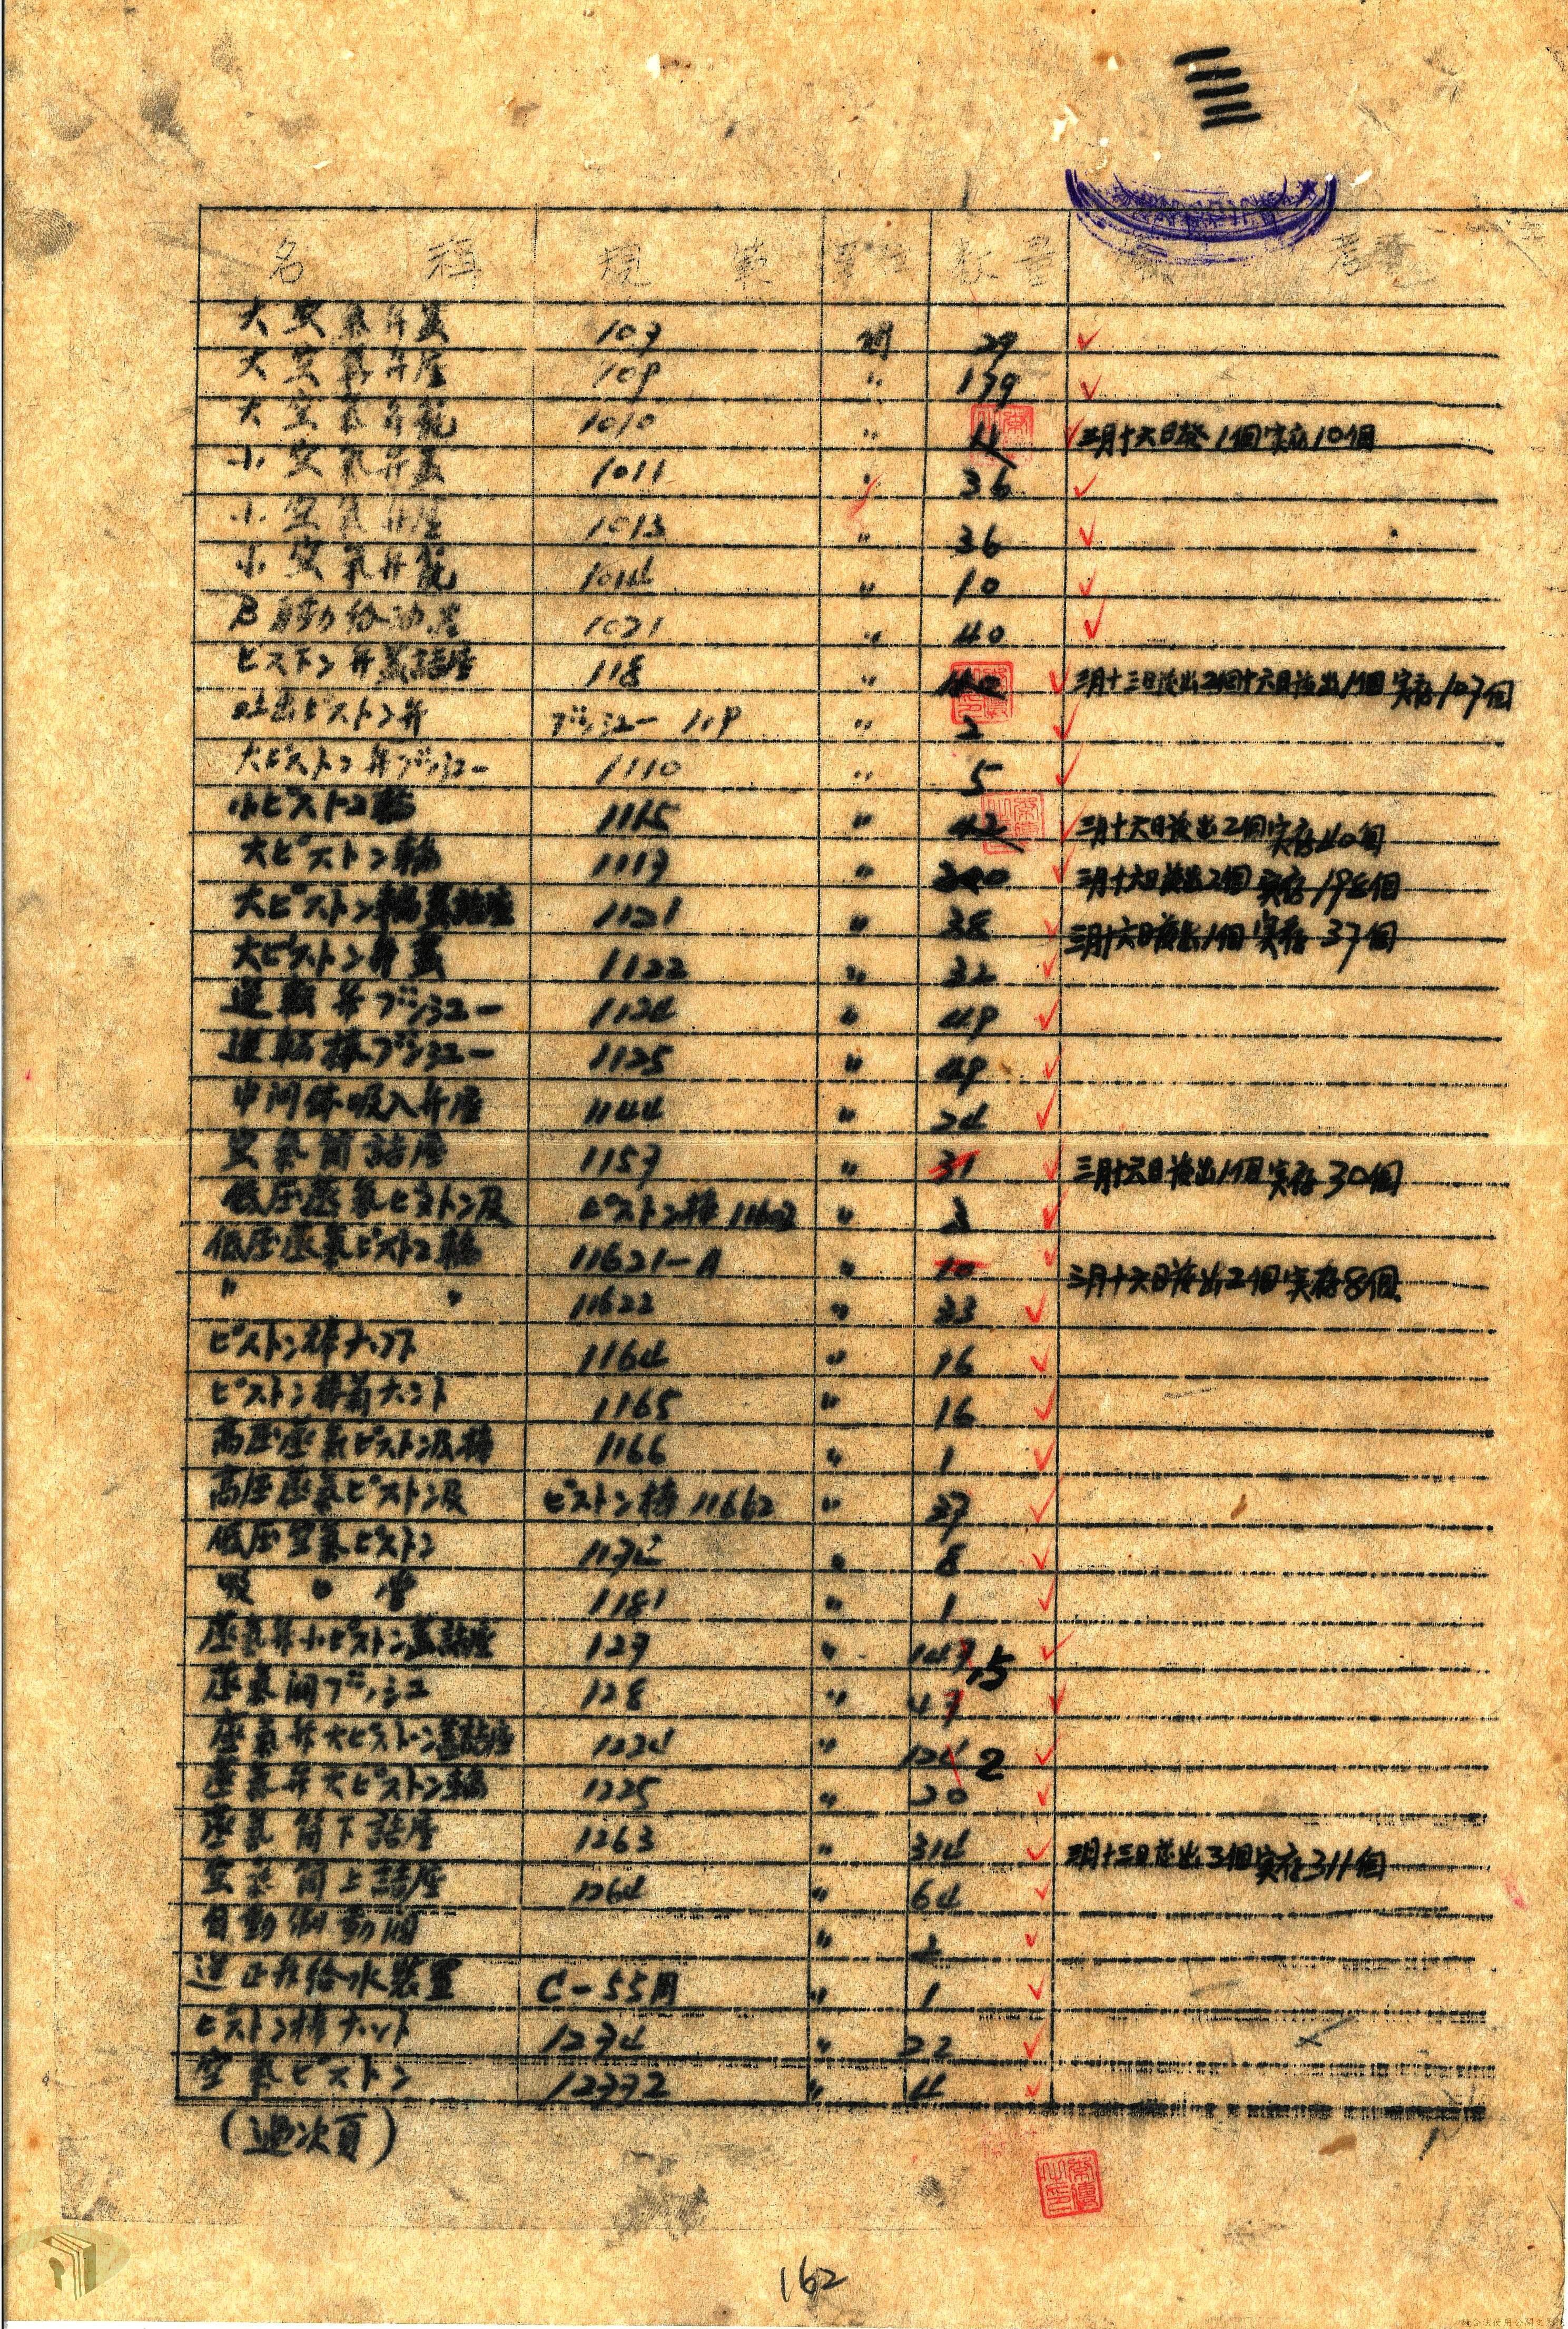 名稱 規範 數量 考
大空氣弁蓋 107 個 29
大空氣弁座 109 〃 179
大空氣弁龍 1010 〃 11 三月十六日發1個実存10個
小空氣弁蓋 1011 〃 36
小空氣弁座 1013 〃 36
小空氣弁龍 1014 〃 10
B自動給油器 1021 〃 40
ピストン弁蓋詰座 118 〃 三月十三日發出2個十六日發出11個実存107個
吐出ピストン弁 ブッシュー 119 〃 2
大ピストン弁ブッシュー 1110 〃 5
小ピストン輪 1115 〃 42 三月十六日發出2個実存40個
大ピストン輪 1117 〃 200 三月十六日發出2個実存198個
大ピストン輪蓋詰座 1121 〃 38 三月十六日發出1個実存37個
大ピストン弁蓋 1122 〃 32
逆転弁ブッシュー 1124 〃 49
逆転棒ブッシュー 1125 〃 49
中间体吸入弁座 1144 〃 24
空氣筒詰座 1157 〃 31 三月十六日發出1個実存30個
低圧蒸氣ピストン及 ピストン棒 〃
低圧蒸氣ピストン輪 11621-A 〃 10 三月十六日發出2個実存8個
〃 〃 11622 〃 33
ピストン棒ナット 1164 〃 16
ピストン棒前ナット 1165 〃 16
高圧蒸氣ピストン及棒 1166 〃 1
高圧蒸氣ピストン及 ピストン棒 11662 〃 37
低圧空氣ピストン 〃 8
吸口管 1181 〃 1
蒸氣弁小ピストン蓋詰座 127 〃 147 5
蒸氣间ブッシュ 128 〃 47
蒸氣弁大ピストン蓋詰座 1224 〃 124 2
蒸氣弁大ピストン輪 1225 〃 20
蒸氣筒下詰座 1263 〃 314 三月十三日發出3個実存311個
空氣筒上詰座 1264 〃 64
自動制動间 〃
逆止弁給水裝置 C-55用 〃 1
ピストン棒ナット 1274 〃 22
空氣ピストン 12772 〃 4
(過次頁)
162